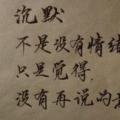 沉默
不是没有情绪
只是觉得.
没有再说的意